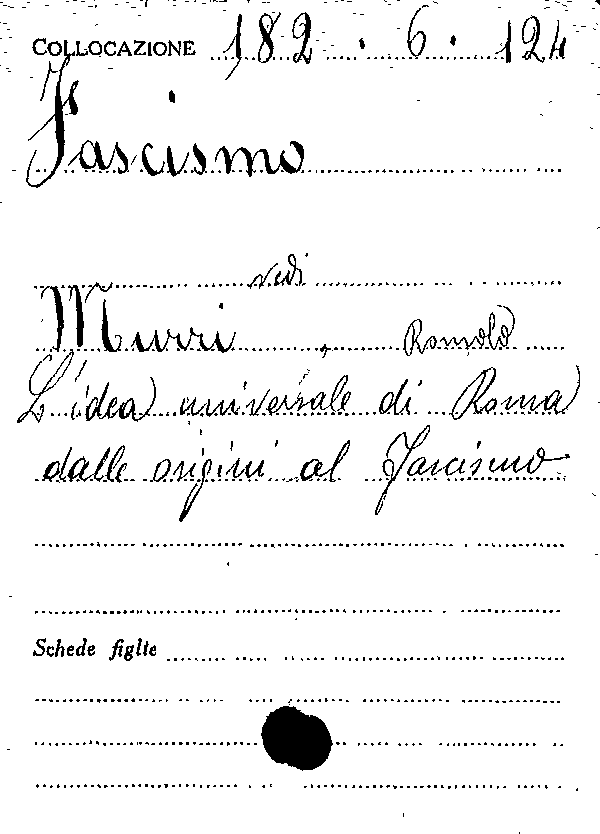 COLLOCAZIONE 182.6.124
Fascismo
vedi
Murri, Romolo
L'idea universale di Roma
dalle origini al Fascismo
Schede figlie